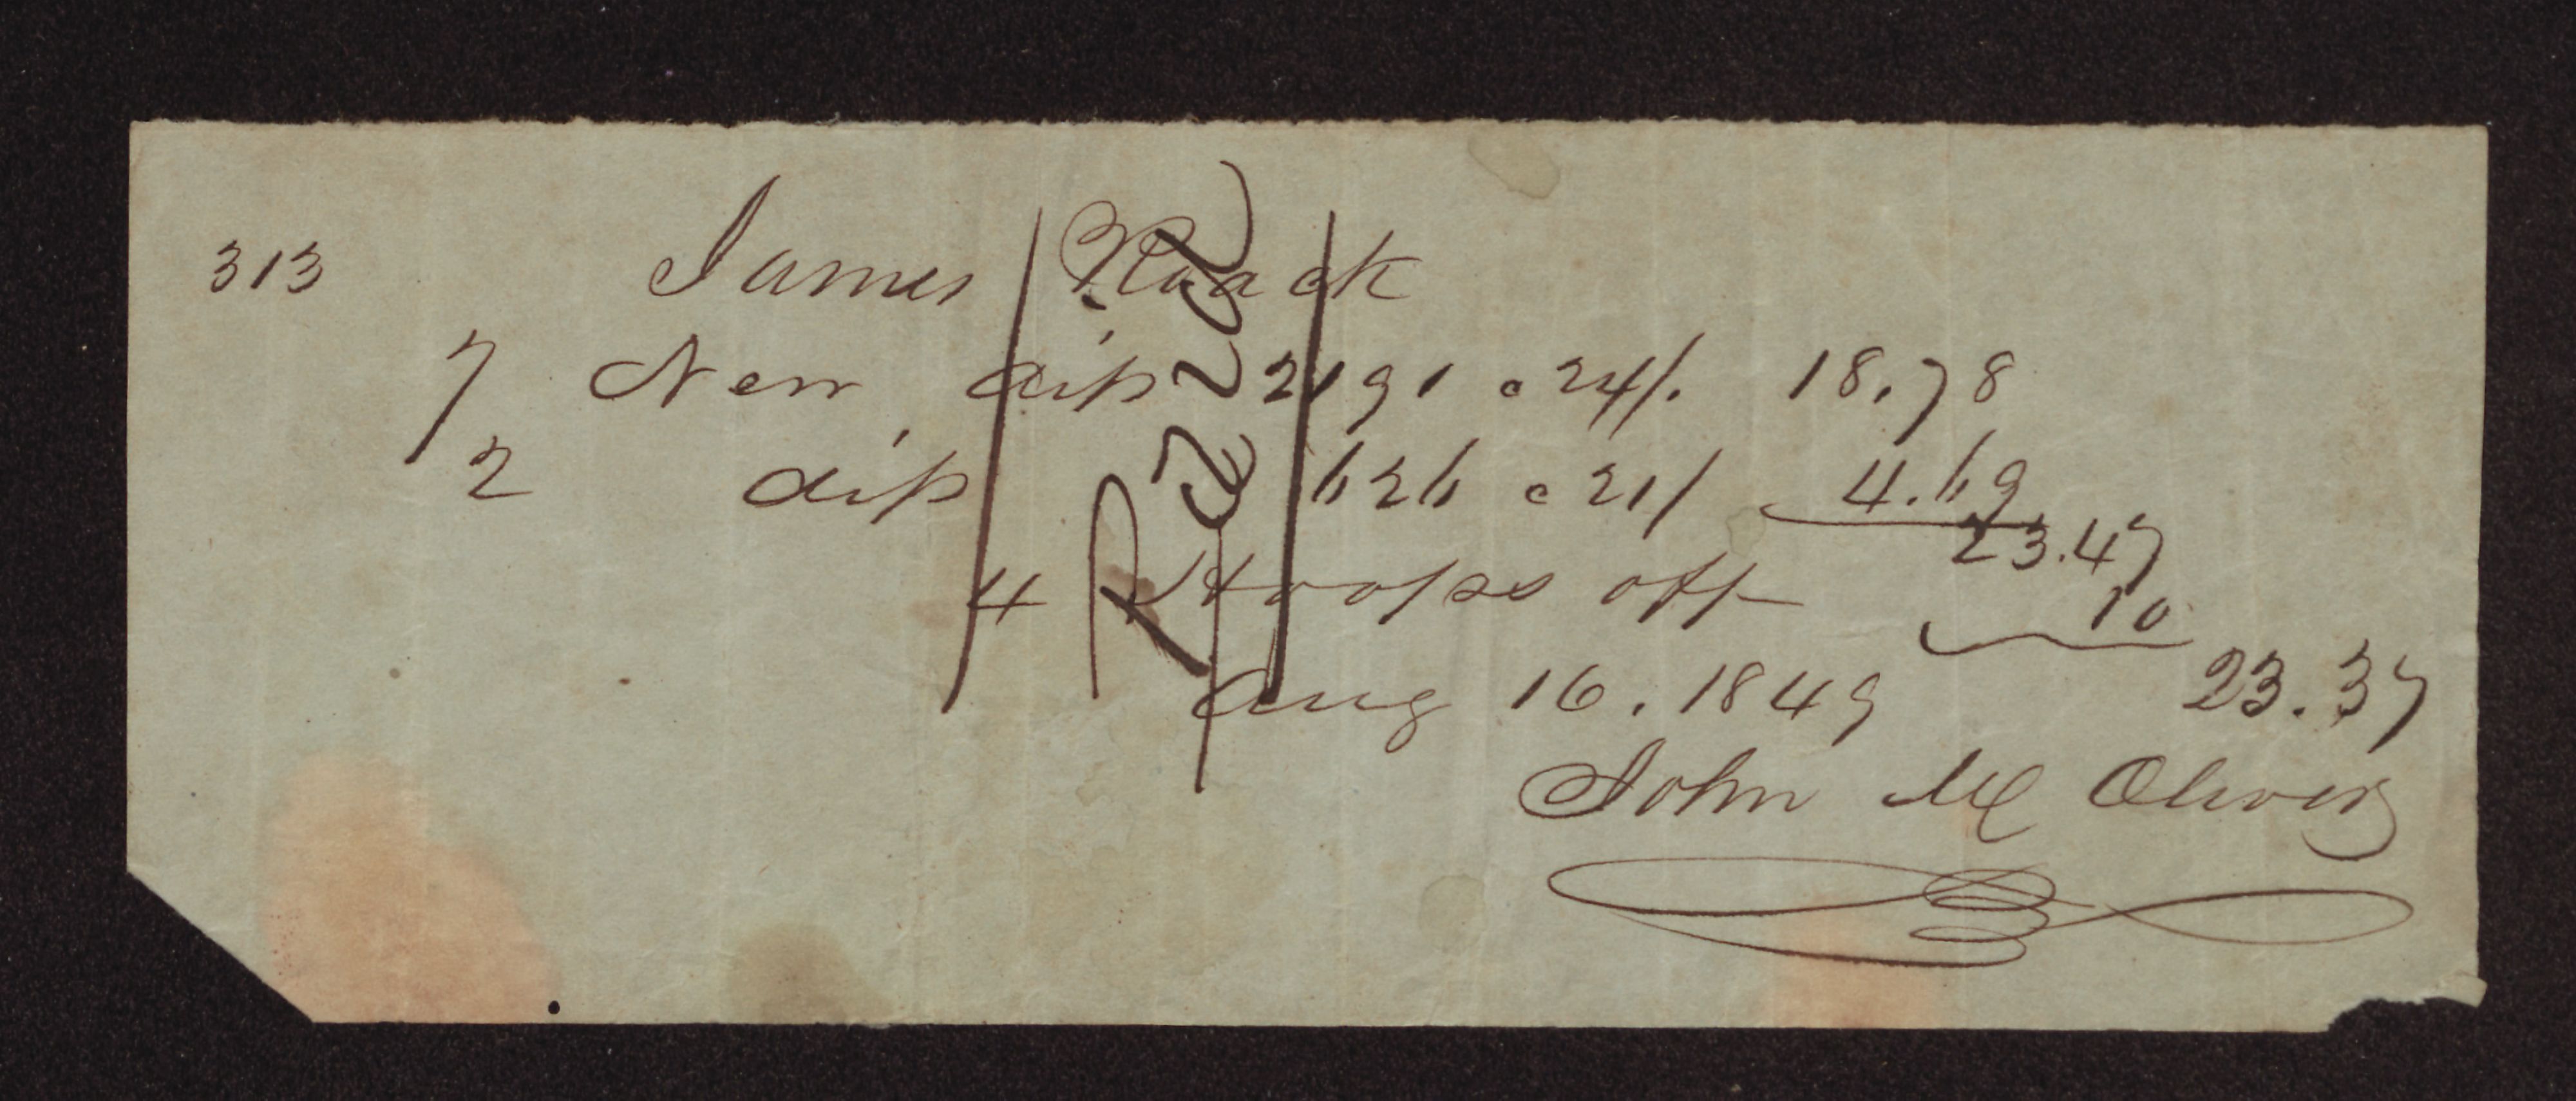 313 James Roack
7 New dip 2191 @ 24/. 18.78
2 dip 626 @ 21/ 4.69
23.47
4 Hoops off 10
Aug 16. 1849 23.37
John M Oliver